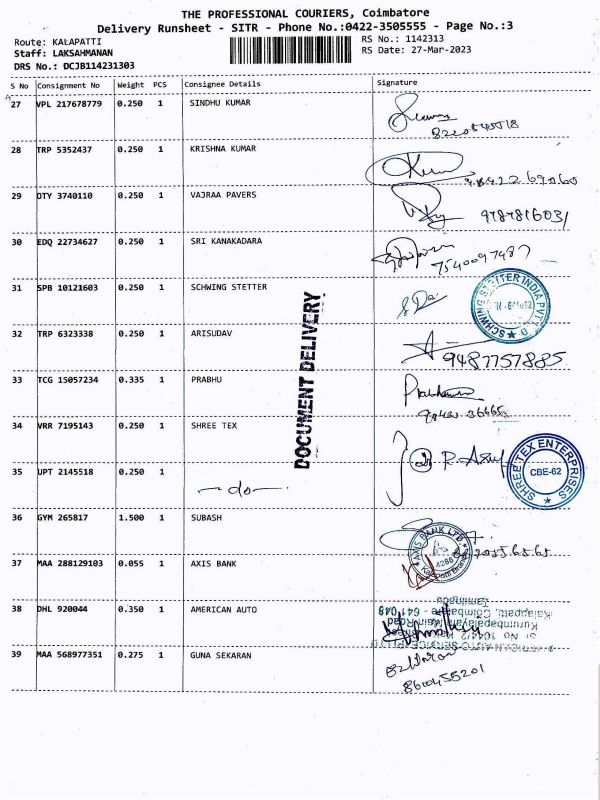 THE PROFESSIONAL COURIERS, Coimbatore
Delivery Runsheet - SITR - Phone No.:0422-3505555 - Page No.:3
Route: KALAPATTI
RS No.: 1142313
Staff: LAKSAHMANAN
RS Date: 27-Mar-2023
DRS No.: DCJB114231303
S No Consignment No Weight PCS Consignee Details Signature
27 VPL 217678779 0.250 1 SINDHU KUMAR
28 TRP 5352437 0.250 1 KRISHNA KUMAR
29 OTY 3740110 0.250 1 VAJRAA PAVERS
9787816031
30 EDQ 22734627 0.250 1 SRI KANAKADARA
7540097487
31 SPB 10121603 0.250 1 SCHWING STETTER
SCHWING STETTER INDIA PVT LTD
32 TRP 6323338 0.250 1 ARISUDAV
9487757885
33 TCG 15057234 0.335 1 PRABHU
DOCUMENT DELIVERY
34 VRR 7195143 0.250 1 SHREE TEX
SHREE TEX ENTERPRISES
CBE-62
35 UPT 2145518 0.250 1 -do-
36 GYM 265817 1.500 1 SUBASH
37 MAA 288129103 0.055 1 AXIS BANK
AXIS BANK LTD
4266
38 DHL 920044 0.350 1 AMERICAN AUTO
Tamilnadu
Kalappatti, Coimbatore - 641 048
Kurumbapalayam Main Road
39 MAA 568977351 0.275 1 GUNA SEKARAN
8610455201